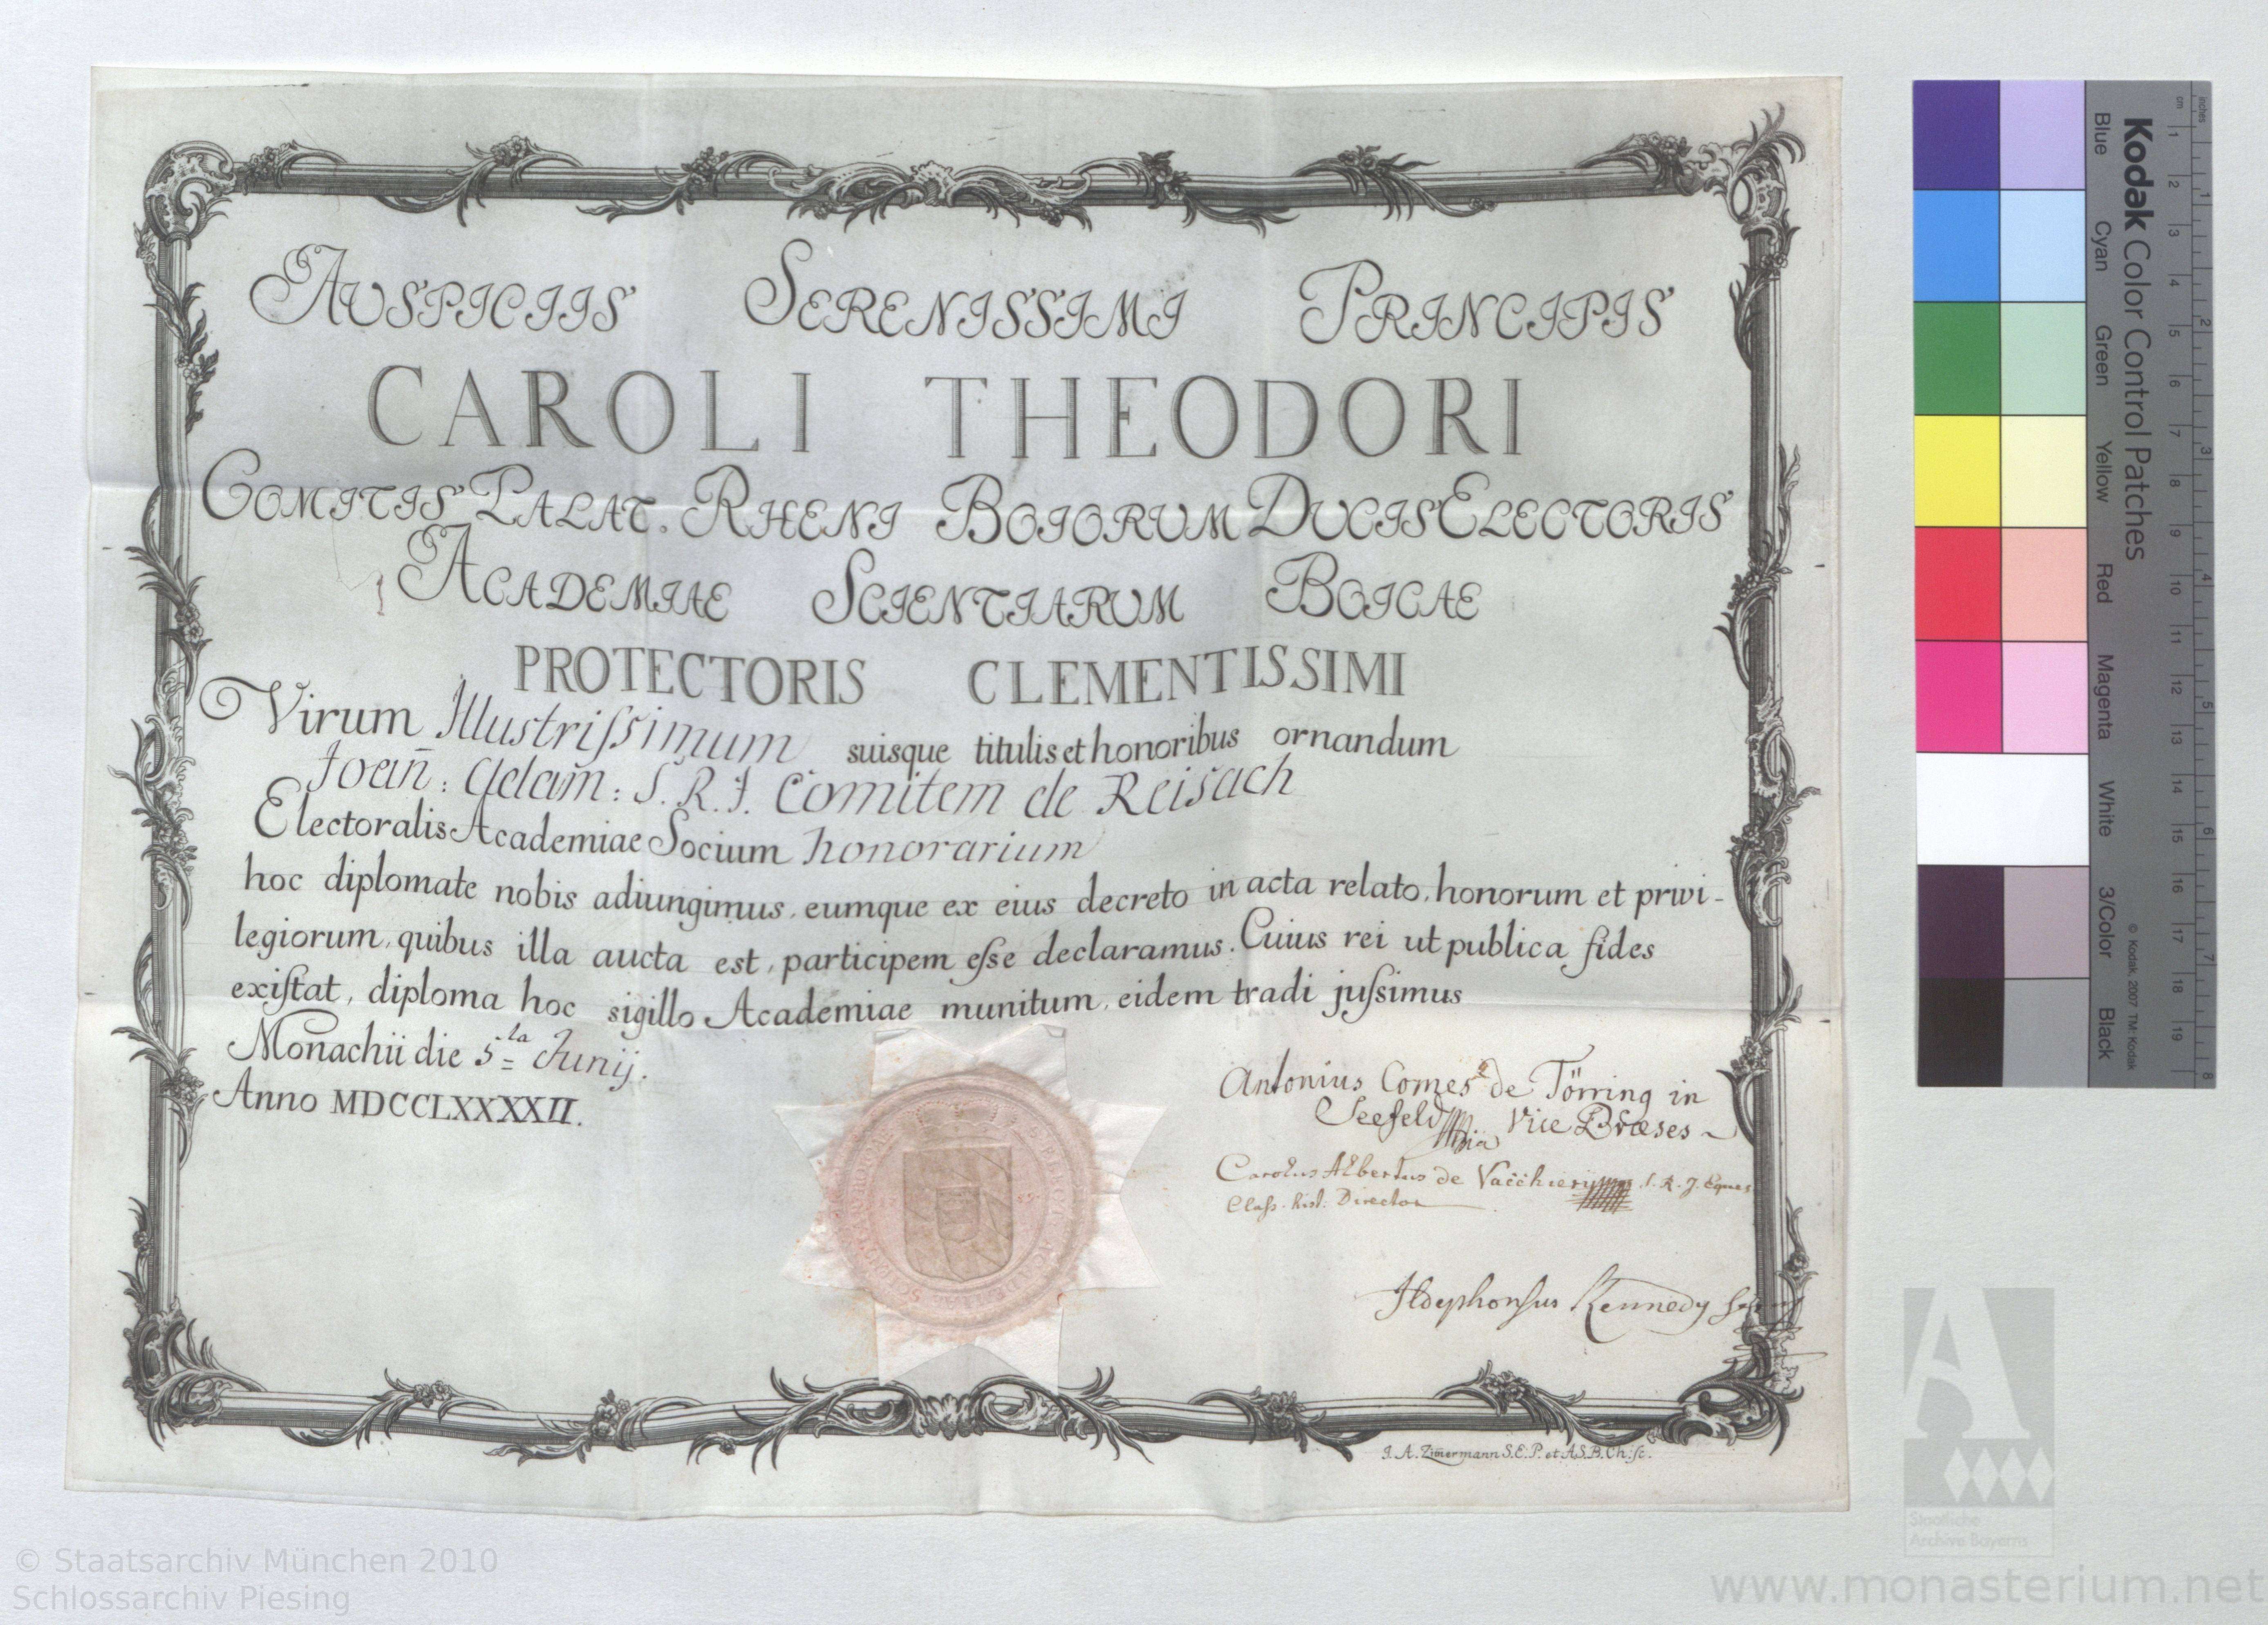 AUSPICIIS SERENISSIMI PRINCIPIS
CAROLI THEODORI
COMITIS PALAT. RHENI BOIORUM DUCIS ELECTORIS
ACADEMIAE SCIENTIARUM BOICAE
PROTECTORIS CLEMENTISSIMI
Virum Illustriſsimum suisque titulis et honoribus ornandum
Joan̄: Adam̄: S. R. I. Comitem de Reisach
Electoralis Academiae Socium honorarium
hoc diplomate nobis adiungimus, eumque ex eius decreto in acta relato, honorum et privi-
legiorum, quibus illa aucta est, participem eſse declaramus. Cuius rei ut publica fides
exiſtat, diploma hoc sigillo Academiae munitum, eidem tradi juſsimus
Monachii die 5ta Junij.
Anno MDCCLXXXXII.
Antonius Comes de Törring in
Seefeld Vice Præses
Carolus Albertus de Vacchiery S. R. J. Eques
Claſs. hist. Director
Ildephonſus Kennedy
J. A. Zim̄ermann S. E. P. et A. S. B. Ch: ſc.
Kodak Color Control Patches
Blue Cyan Green Yellow Red Magenta White 3/Color Black
© Kodak, 2007 TM: Kodak
cm 1 2 3 4 5 6 7 8 9 10 11 12 13 14 15 16 17 18 19
inches 1 2 3 4 5 6 7 8
Staatliche
Archive Bayerns
© Staatsarchiv München 2010
Schlossarchiv Piesing
www.monasterium.net